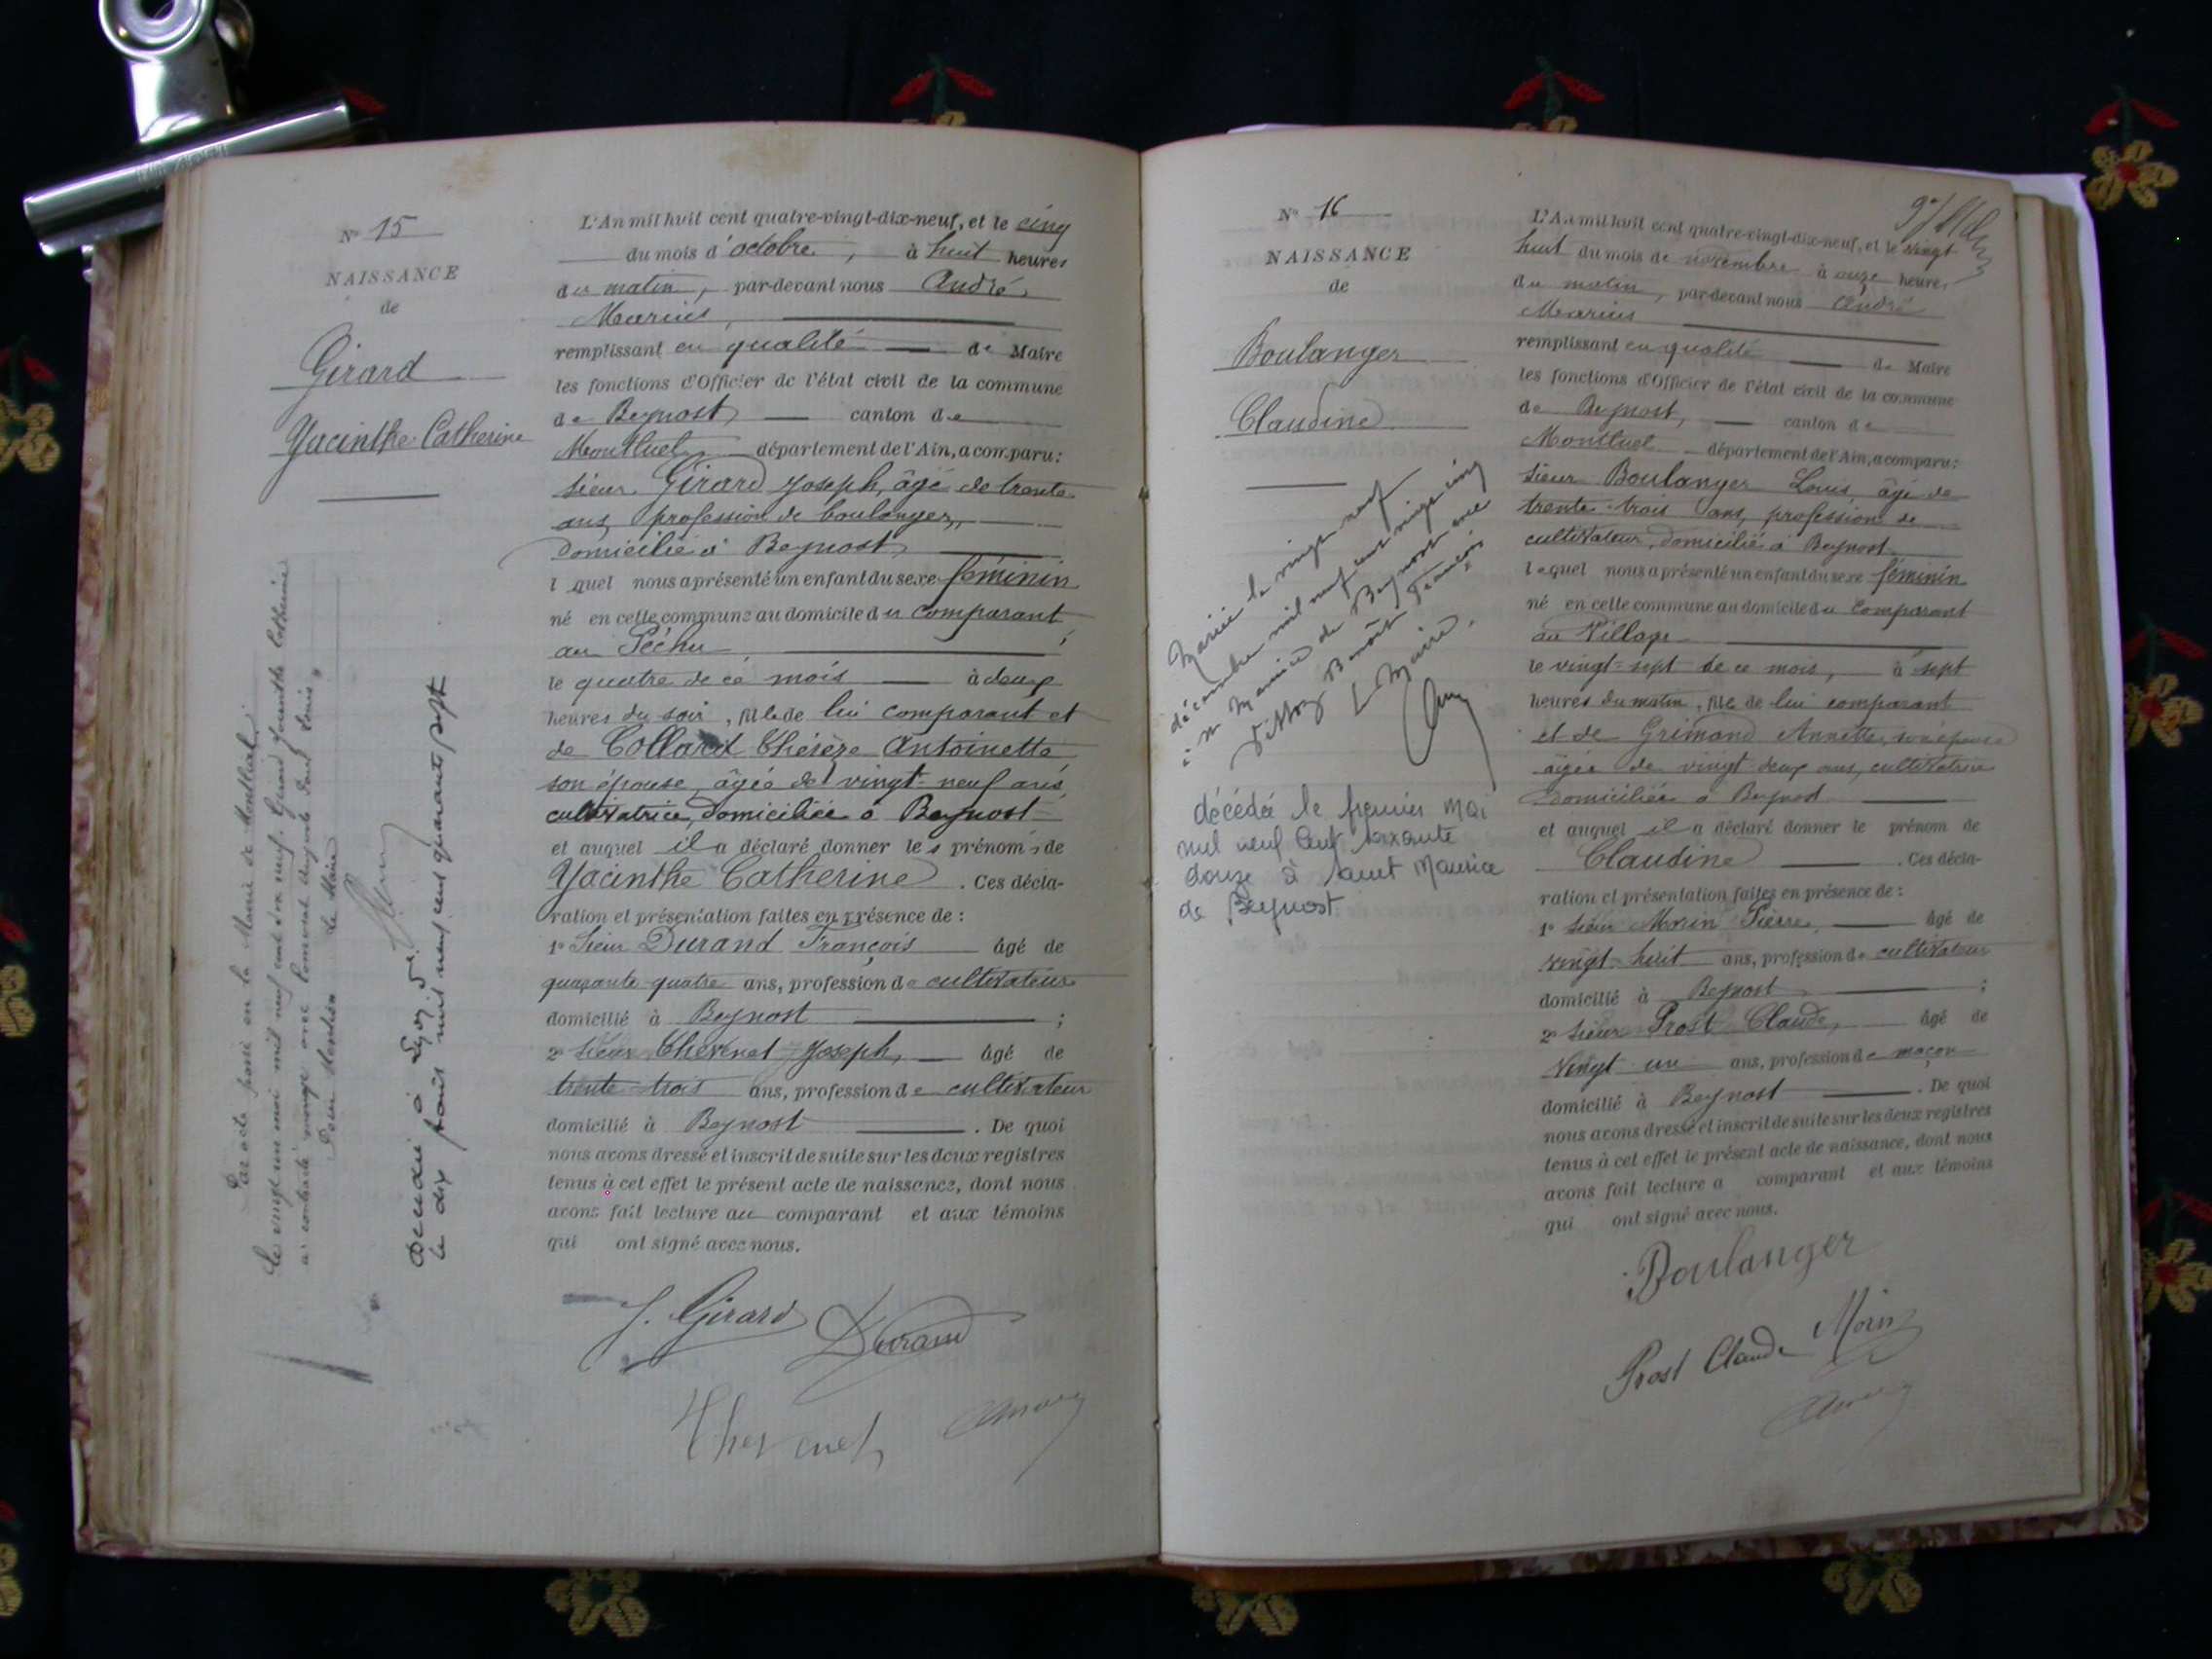 N° 15
NAISSANCE
de
Girard
Yacinthe Catherine
Par acte passé en la Mairie de
le vingt un mai mil neuf cent dix neuf Girard Yacinthe Catherine
a contracté mariage avec Louis
Le Maire
Décédée à Lyon
le dix août mil neuf cent quarante sept
L'An mil huit cent quatre-vingt-dix-neuf, et le cinq
du mois d'octobre, à huit heures
du matin, par-devant nous André
Marius,
remplissant en qualité de Maire
les fonctions d'Officier de l'état civil de la commune
de Beynost canton de
Montluel département de l'Ain, a comparu:
sieur Girard Joseph, âgé de trente
ans, profession de boulanger,
domicilié à Beynost
lequel nous a présenté un enfant du sexe féminin
né en cette commune au domicile du comparant
au Péchu,
le quatre de ce mois à deux
heures du soir, fille de lui comparant et
de Collard Thérèze Antoinette
son épouse, âgée de vingt-neuf ans,
cultivatrice, domiciliée à Beynost
et auquel il a déclaré donner les prénoms de
Yacinthe Catherine. Ces décla-
ration et présentation faites en présence de :
1° Sieur Durand François âgé de
quarante-quatre ans, profession de cultivateur
domicilié à Beynost ;
2° Sieur Chevenet Joseph, âgé de
trente-trois ans, profession de cultivateur
domicilié à Beynost. De quoi
nous avons dressé et inscrit de suite sur les deux registres
tenus à cet effet le présent acte de naissance, dont nous
avons fait lecture au comparant et aux témoins
qui ont signé avec nous.
J. Girard Durand
Chevenet
N° 16
NAISSANCE
de
Boulanger
Claudine
Mariée le vingt neuf
décembre mil neuf cent vingt cinq
à la Mairie de Beynost avec
Benoît François
Le Maire,
décédée le premier mai
mil neuf cent soixante
douze à Saint Maurice
de Beynost
L'An mil huit cent quatre-vingt-dix-neuf, et le vingt
huit du mois de novembre à onze heures
du matin, par-devant nous André
Marius
remplissant en qualité de Maire
les fonctions d'Officier de l'état civil de la commune
de Beynost, canton de
Montluel département de l'Ain, a comparu:
sieur Boulanger Louis, âgé de
trente-trois ans, profession de
cultivateur, domicilié à Beynost
lequel nous a présenté un enfant du sexe féminin
né en cette commune au domicile du comparant
au Village
le vingt-sept de ce mois, à sept
heures du matin, fille de lui comparant
et de Grimand Annette, son épouse
âgée de vingt-deux ans, cultivatrice
domiciliée à Beynost
et auquel il a déclaré donner le prénom de
Claudine. Ces décla-
ration et présentation faites en présence de :
1° Sieur Morin Pierre, âgé de
vingt-huit ans, profession de cultivateur
domicilié à Beynost ;
2° Sieur Prost Claude, âgé de
vingt un ans, profession de maçon
domicilié à Beynost. De quoi
nous avons dressé et inscrit de suite sur les deux registres
tenus à cet effet le présent acte de naissance, dont nous
avons fait lecture a comparant et aux témoins
qui ont signé avec nous.
Boulanger
Prost Claude Morin